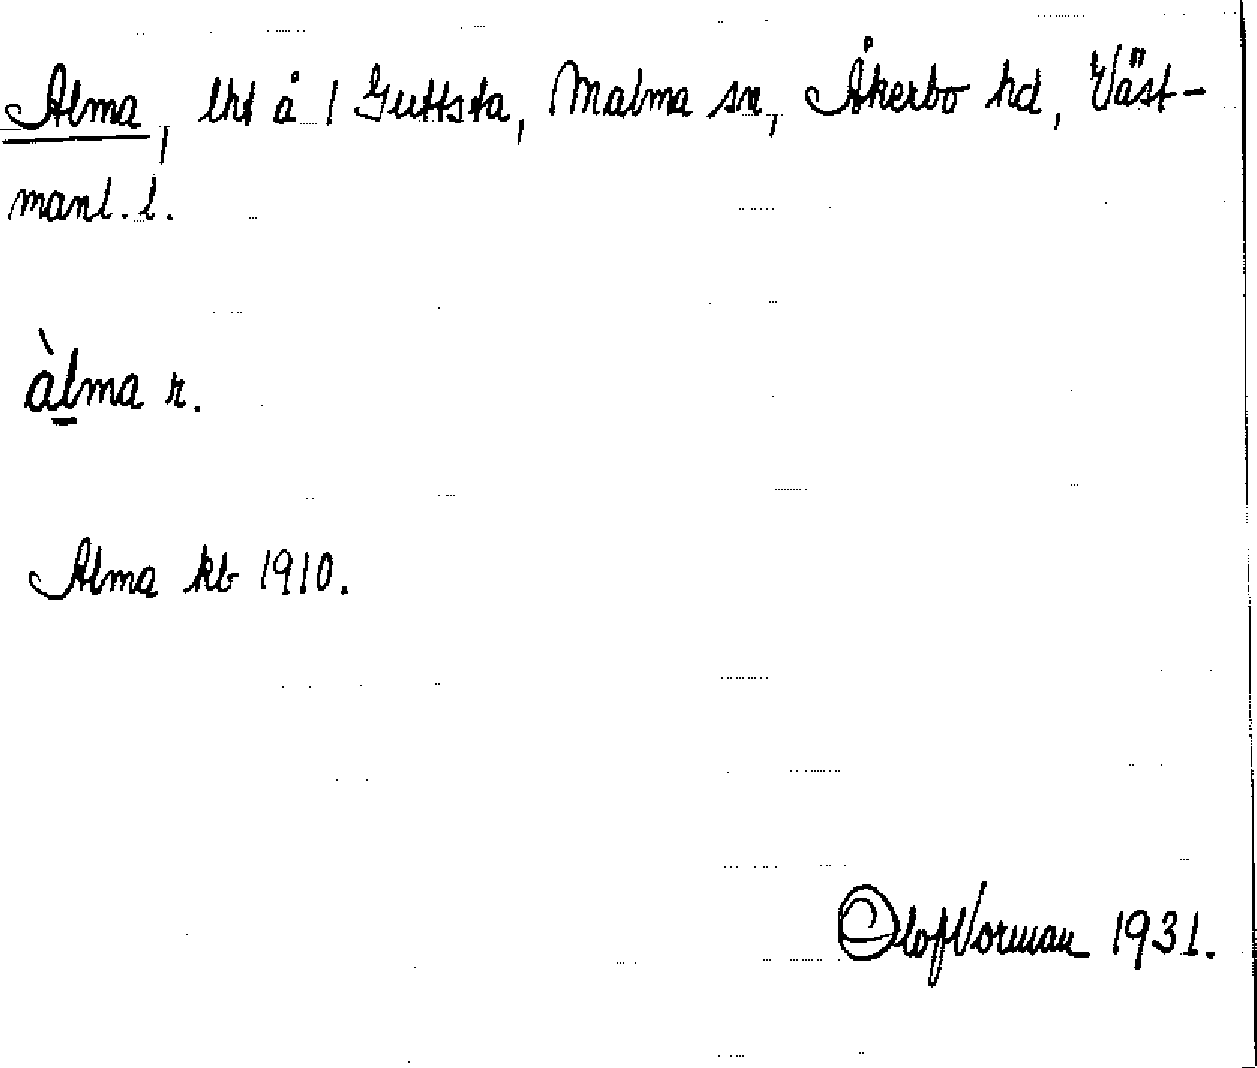 Alma, lht å 1 Guttsta, Malma sn, Åkerbo hd, Väst-
manl. l.
àlma r.
Alma kb 1910.
Olof Norman 1931.